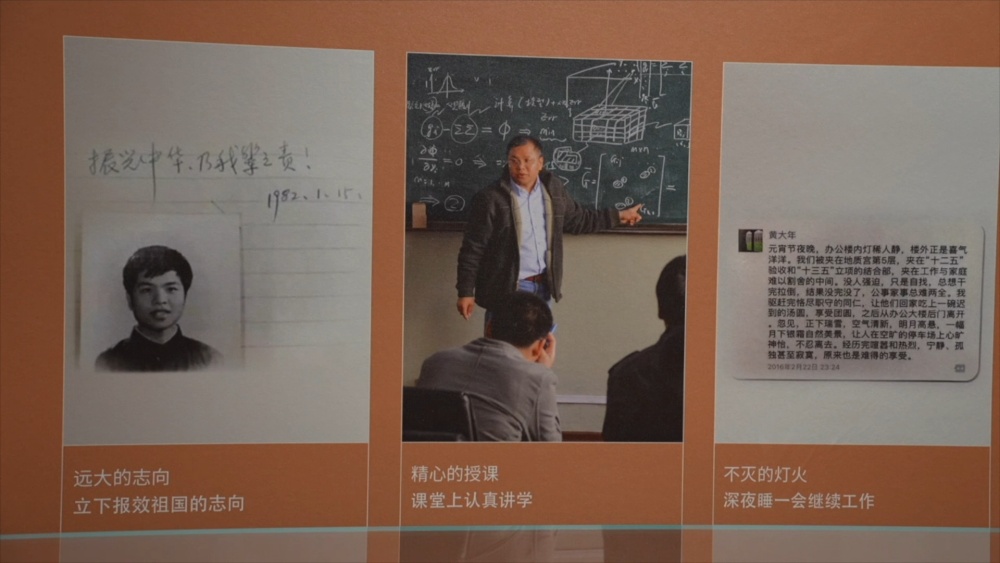 振兴中华、乃我辈之责！
1982.1.15.
远大的志向
立下报效祖国的志向
精心的授课
课堂上认真讲学
黄大年
元宵节夜晚，办公楼内灯稀人静，楼外正是喜气
洋洋。我们被夹在地质宫第5层，夹在“十二五”
验收和“十三五”立项的结合部，夹在工作与家庭
难以割舍的中间。没人强迫，只是自找，总想干
完拉倒，结果没完没了，公事家事总难两全。我
驱赶完恪尽职守的同仁，让他们回家吃上一碗迟
到的汤圆，享受团圆，之后从办公大楼后门离开
。忽见，正下瑞雪，空气清新，明月高悬，一幅
月下银霜自然美景，让人在空旷的停车场上心旷
神怡，不忍离去。经历完喧嚣和热烈，宁静、孤
独甚至寂寞，原来也是难得的享受。
2016年2月22日 23:24
不灭的灯火
深夜睡一会继续工作